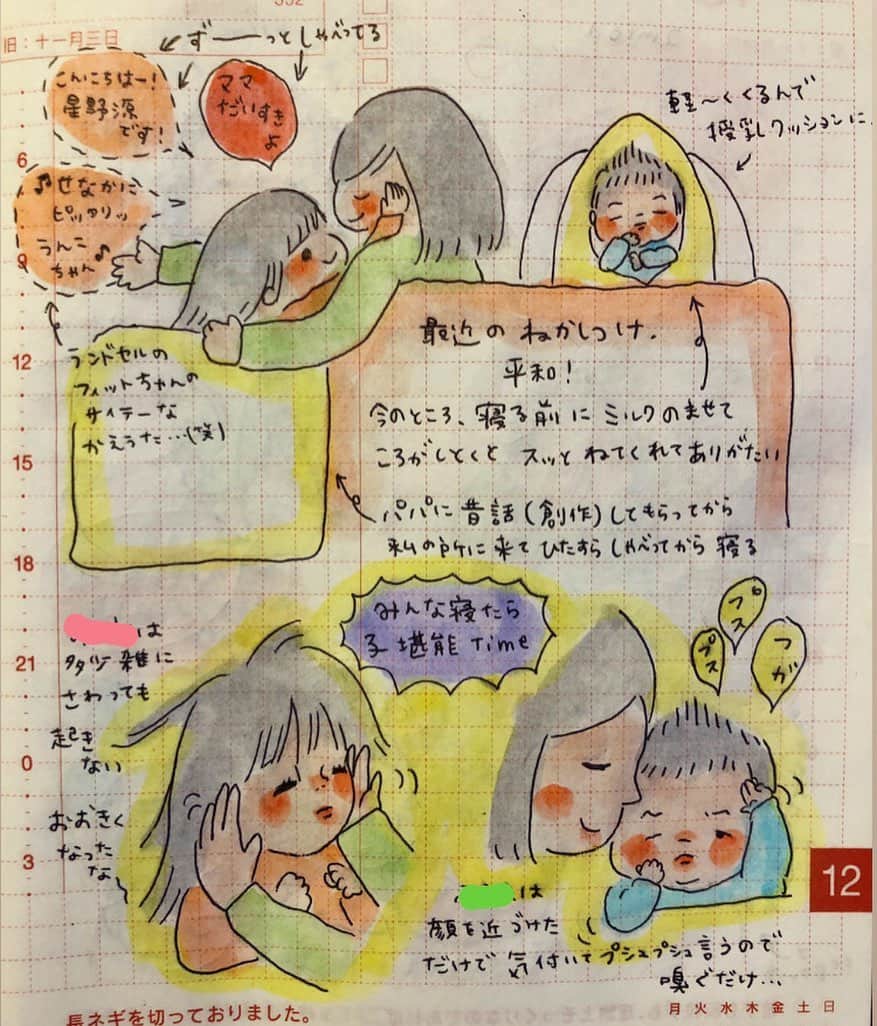 旧:十一月三日
ず――っとしゃべってる
こんにちはー!
星野源
です!
ママ
だいすき
よ
♪せなかに
ピッタリッ
うんこ
ちゃん♪
軽〜くくるんで
授乳クッションに
6
9
12
15
18
21
0
3
ランドセルの
フィットちゃんの
サイテーな
かえうた…(笑)
最近のねかしつけ。
平和!
今のところ、寝る前にミルクのませて
ころがしとくとスッとねてくれてありがたい
パパに昔話(創作)してもらってから
私の所に来てひたすらしゃべってから寝る
みんな寝たら
子堪能Time
プス
プス
フガ
は
多少雑に
さわっても
起き
ない
おおきく
なった
な
は
顔を近づけた
だけで気付いてプシュプシュ言うので
嗅ぐだけ…
12
長ネギを切っておりました。
月火水木金土日